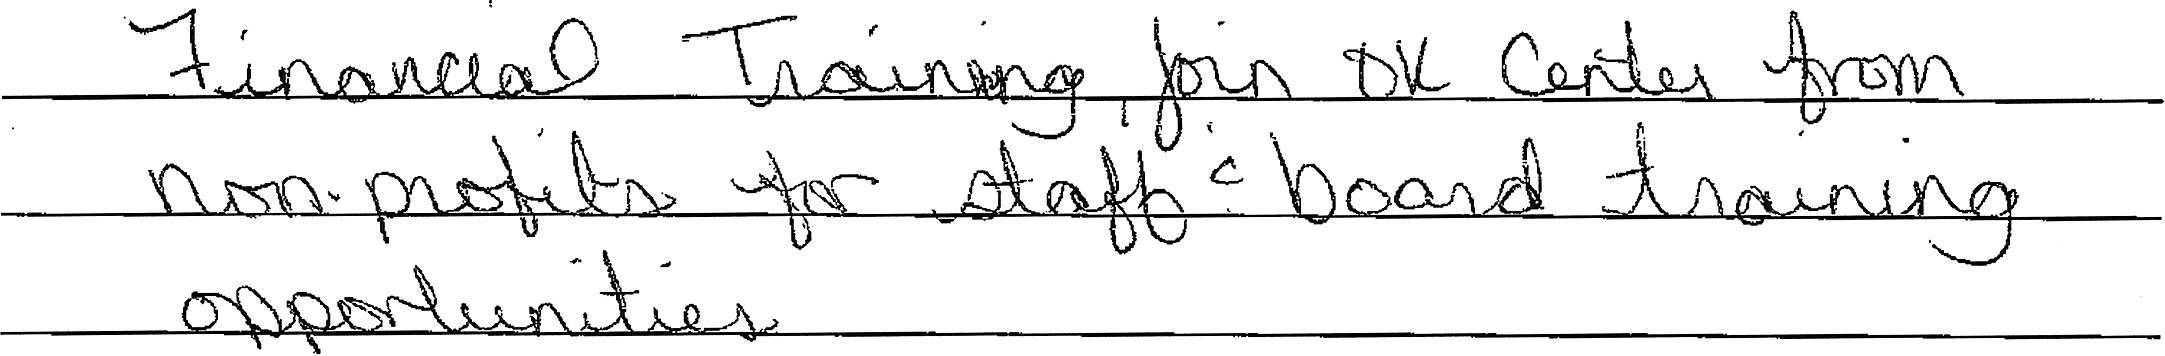 Financial Training, join OK Center from
non-profits for staff & board training
opportunities